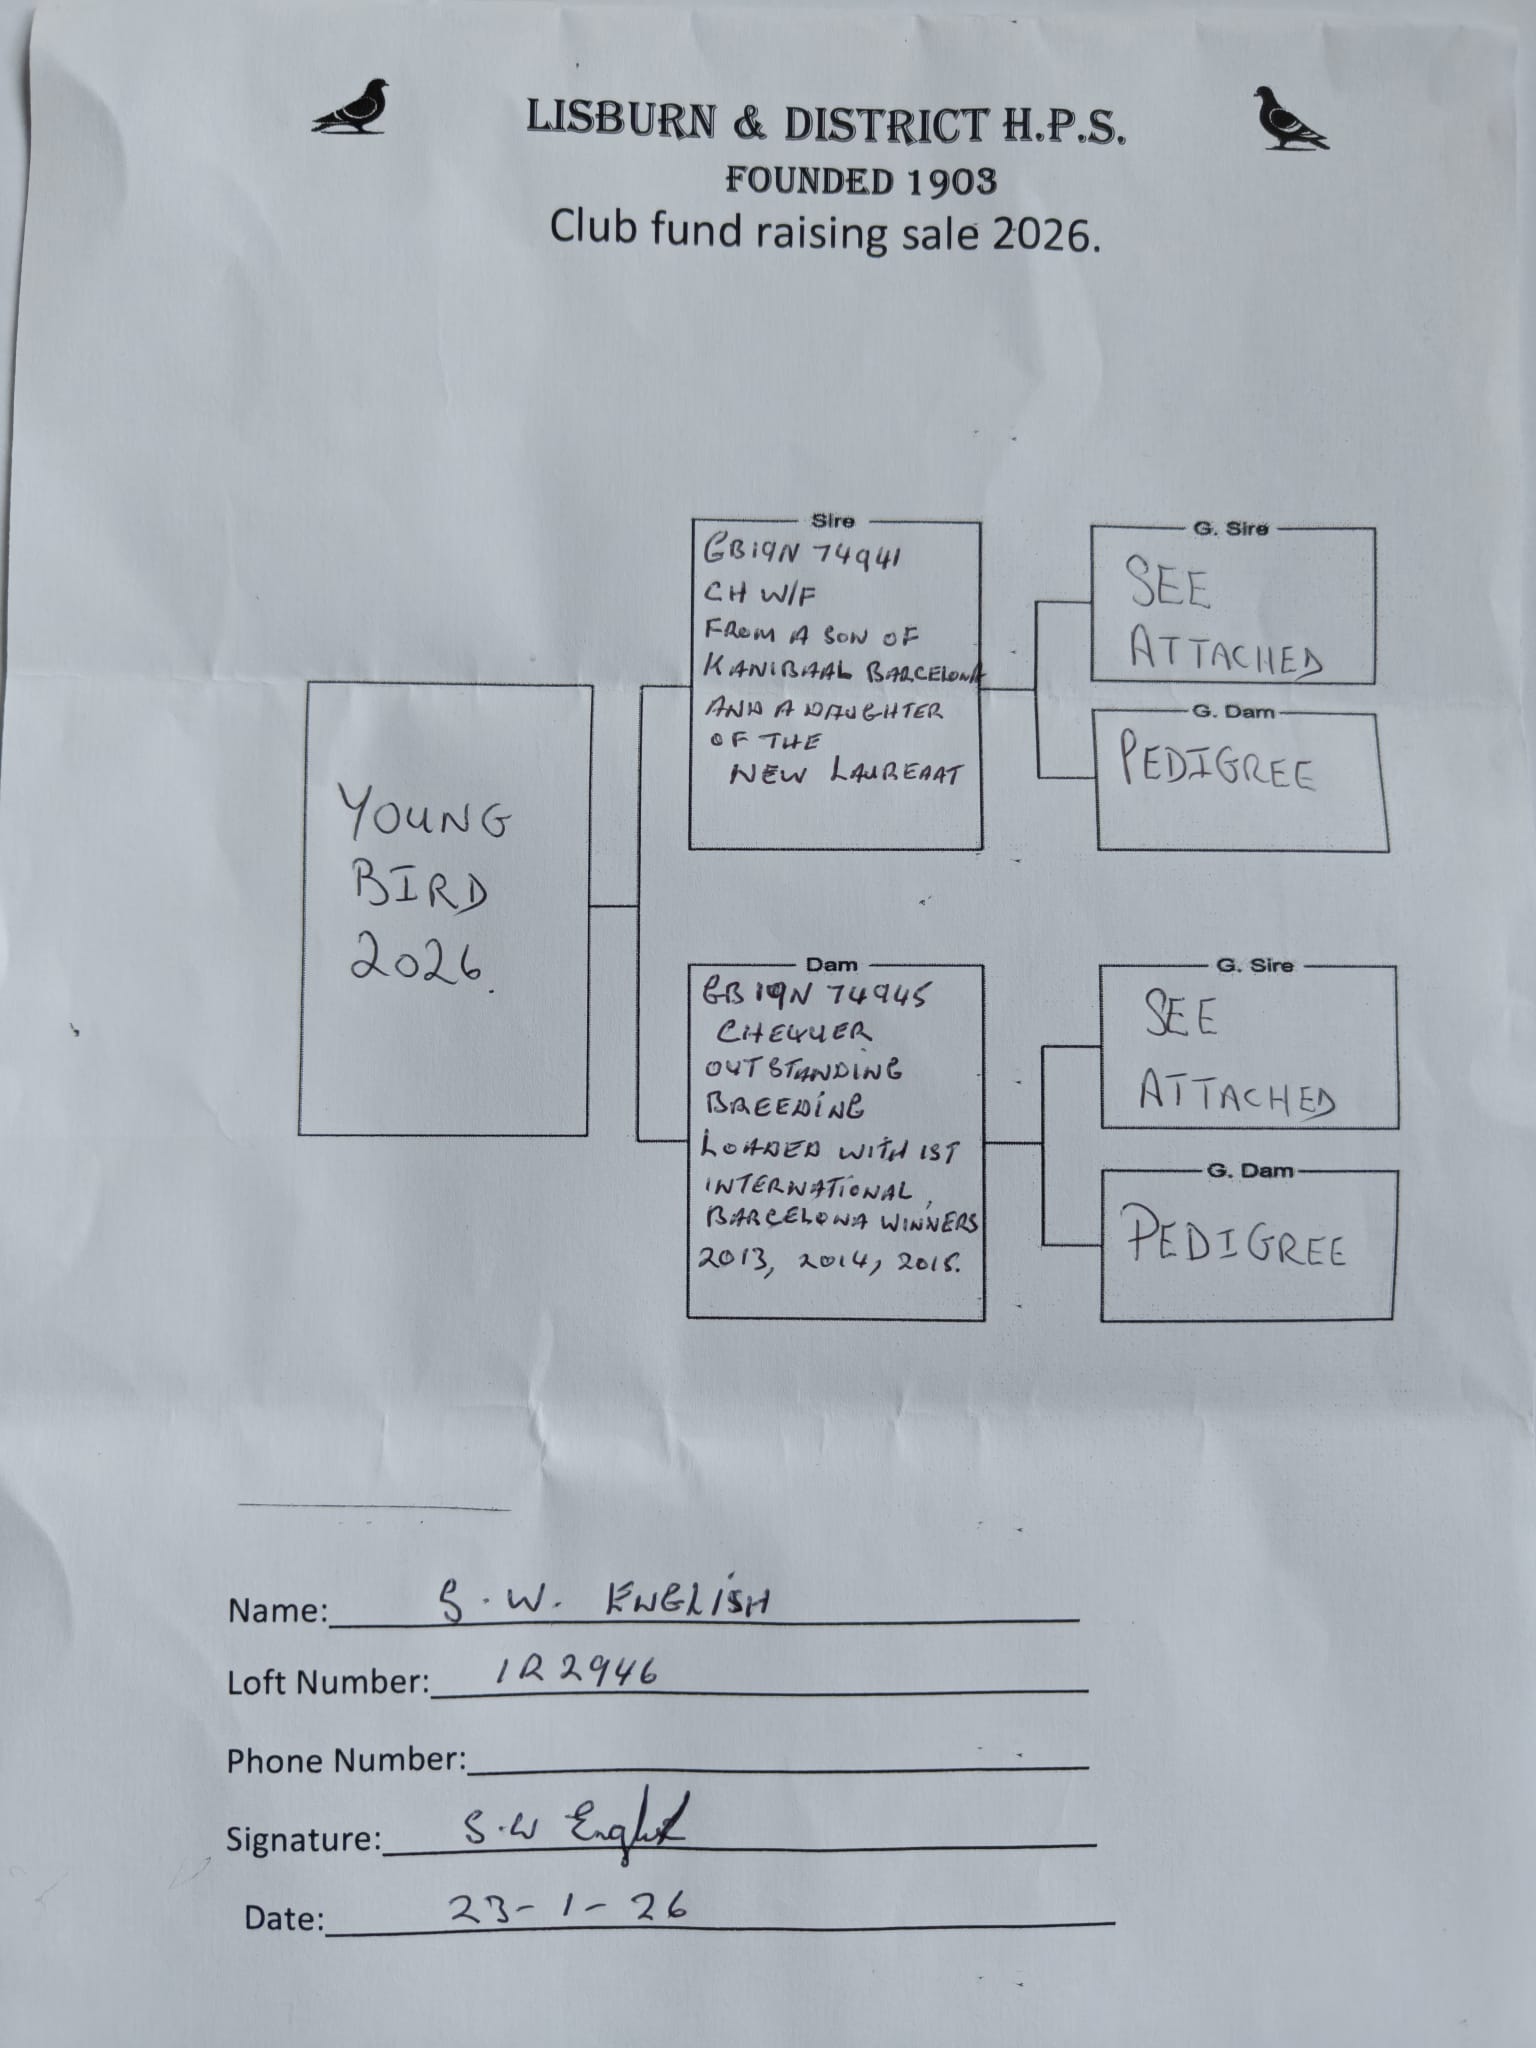 LISBURN & DISTRICT H.P.S.
FOUNDED 1903
Club fund raising sale 2026.
Sire
GB19N 74941
CH W/F
FROM A SON OF
KANIBAAL BARCELONA
AND A DAUGHTER
OF THE
NEW LAUREAAT
G. Sire
SEE
ATTACHED
G. Dam
PEDIGREE
YOUNG
BIRD
2026.
Dam
GB19N 74945
CHEQUER
OUTSTANDING
BREEDING
LOADED WITH 1ST
INTERNATIONAL,
BARCELONA WINNERS
2013, 2014, 2015.
G. Sire
SEE
ATTACHED
G. Dam
PEDIGREE
Name: S. W. ENGLISH
Loft Number: IR2946
Phone Number:
Signature: S.W English
Date: 23-1-26